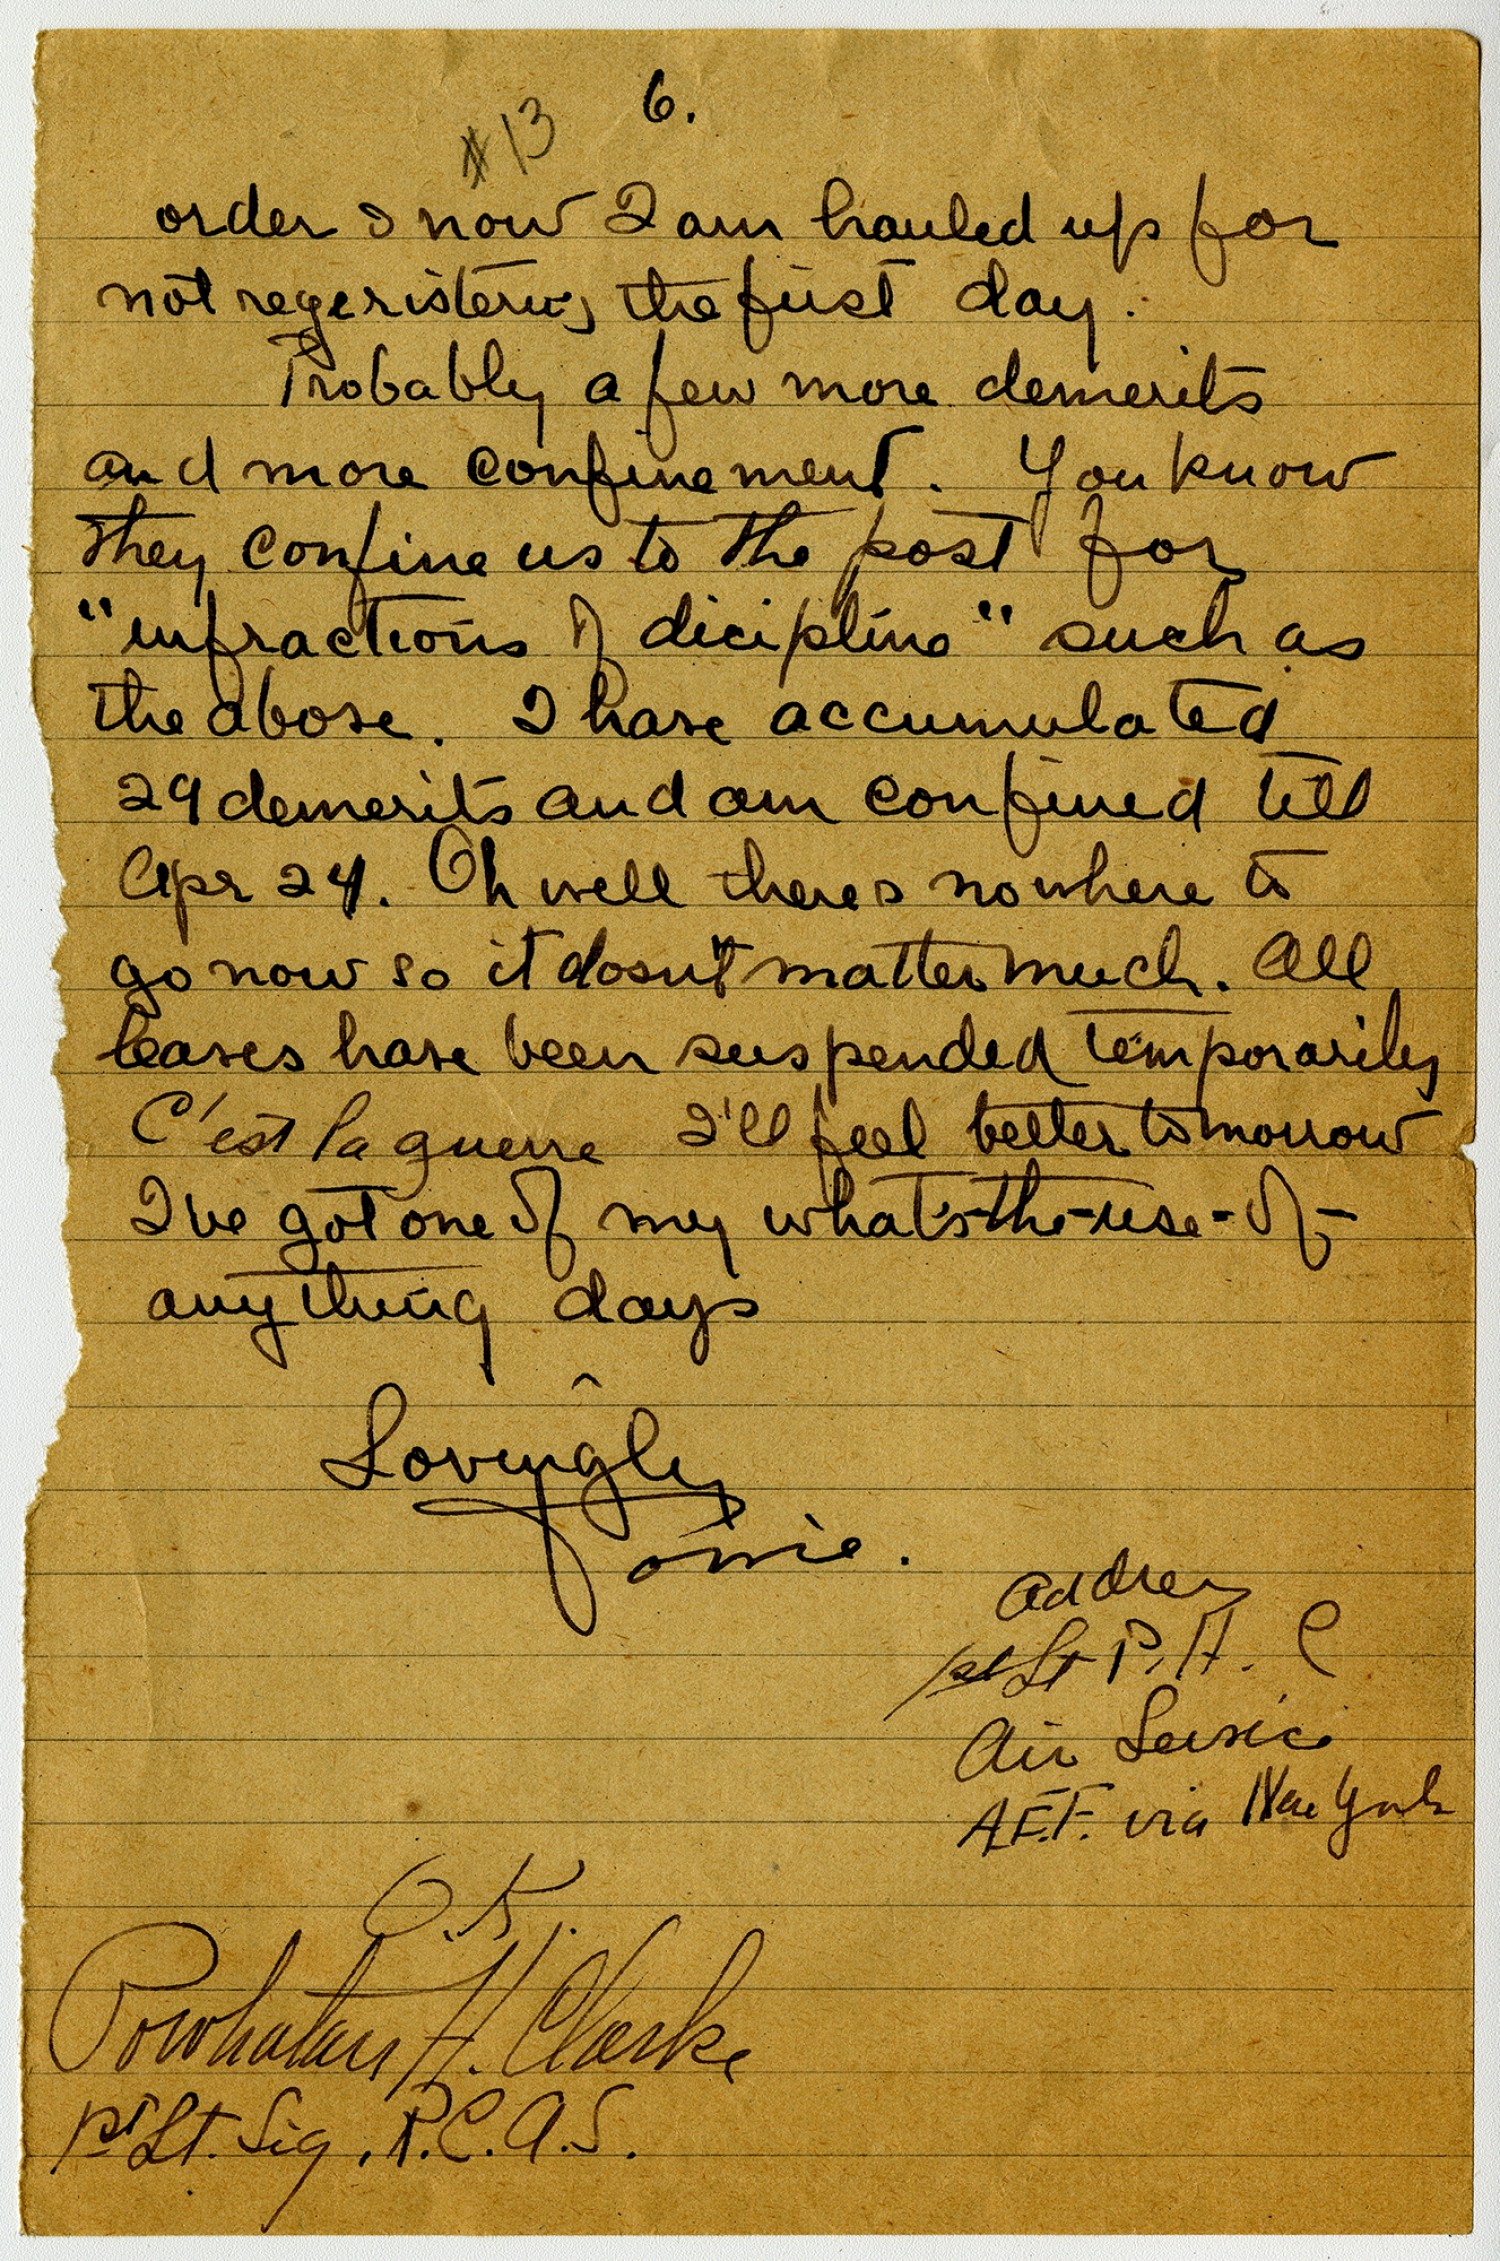 6.
#13
order & now I am hauled up for
not regeristering the first day.
Probably a few more demerits
and more confinement. You know
they confine us to the post for
"infractions of dicipline" such as
the above. I have accumulated
29 demerits and am confined till
Apr 24. Oh well theres nowhere to
go now so it dosn't matter much. All
leaves have been suspended temporarily
C'est la guerre I'll feel better tomorrow
I've got one of my what's-the-use-of-
anything days
Lovingly
Tommie.
Address
1st Lt P. H. C
Air Service
A.E.F. via New York
O.K.
Powhatan H. Clarke
1st Lt. Sig. R.C.A.S.